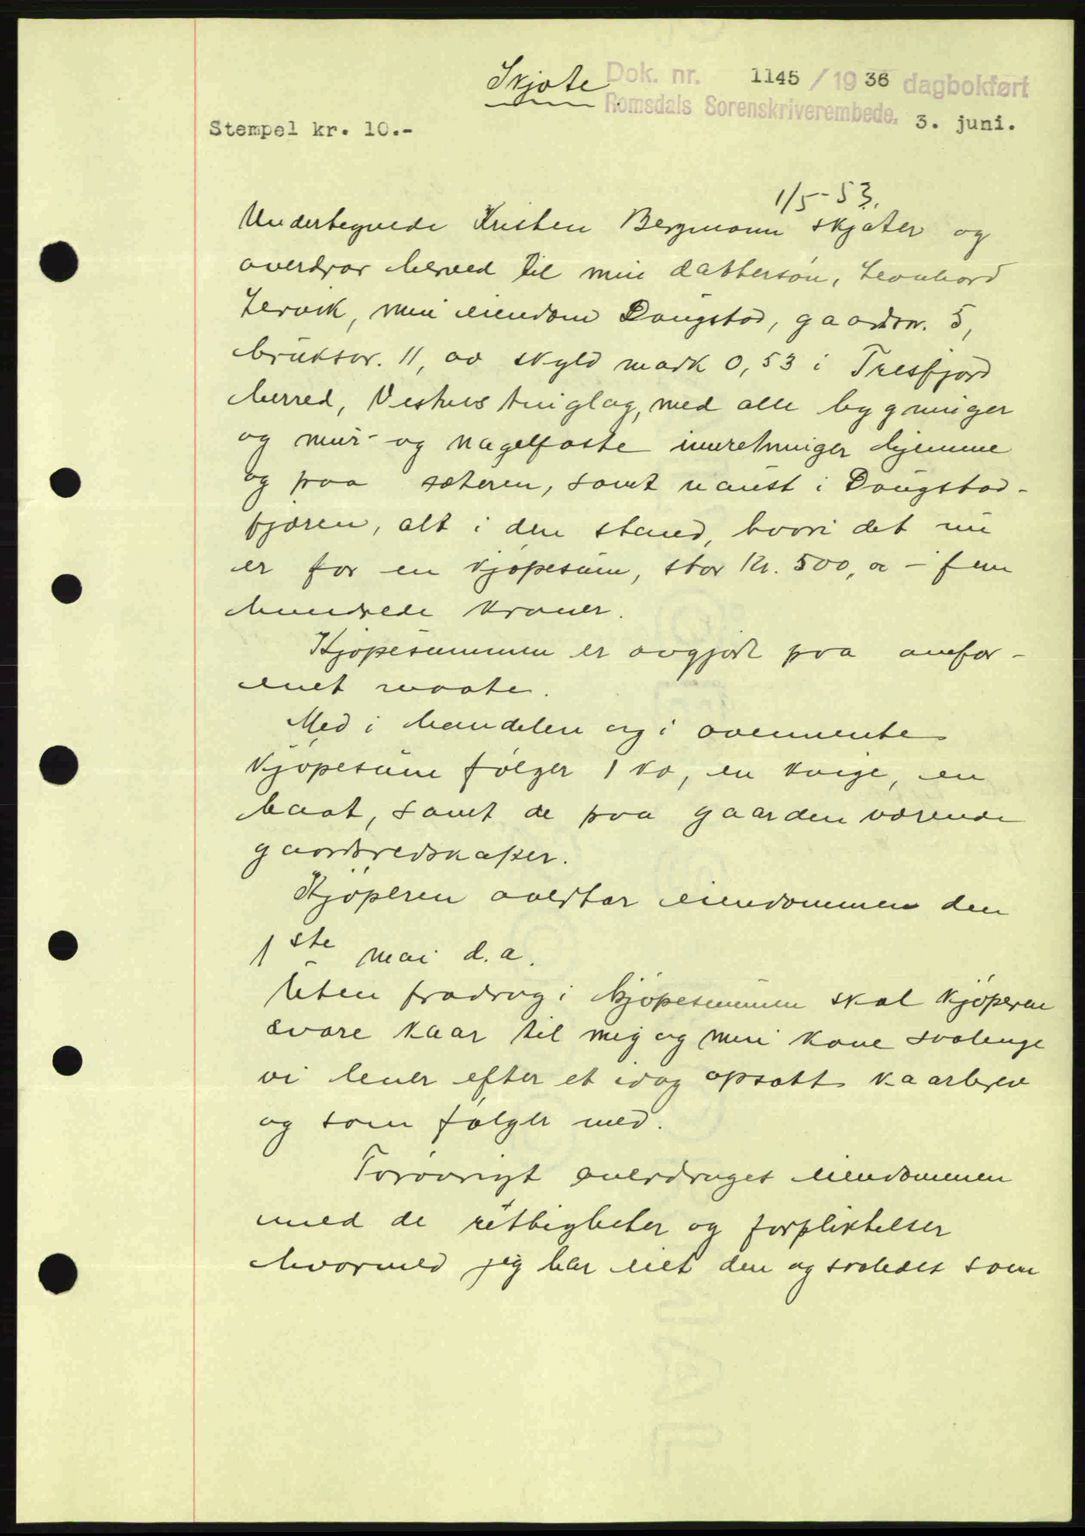 Skjøte
Dok. nr. 1145 / 1936 dagbokført
Romsdals Sorenskriverembede.
3. juni.
Stempel kr. 10.-
1/5-53.
Undertegnede Kristen Bergmann skjøter og
overdrar herved til min dattersøn, Leonhard
Lervik, min eiendom Daugstad, gaardsnr. 5,
bruksnr. 11, av skyld mark 0,53 i Tresfjord
herred, Vestnes tinglag, med alle bygninger
og mur- og nagelfaste innretninger hjemme
og paa sæteren, samt naust i Daugstad-
fjæren, alt i den stand, hvori det nu
er for en kjøpesum, stor Kr. 500,00 - fem
hundrede kroner.
Kjøpesummen er avgjort paa omfor-
enet maate.
Med i handelen og i ovennevnte
kjøpesum følger 1 ko, en kvige, en
baat, samt de paa gaarden værende
gaardsredskaper.
Kjøperen overtar eiendommen den
1ste mai d.a.
Uten fradrag i kjøpesummen skal kjøperen
svare kaar til mig og min kone saalenge
vi lever efter et idag opsatt kaarbrev
og som følger med.
Forøvrigt overdrages eiendommen
med de rettigheter og forpliktelser
hvormed jeg har eiet den og saaledes som